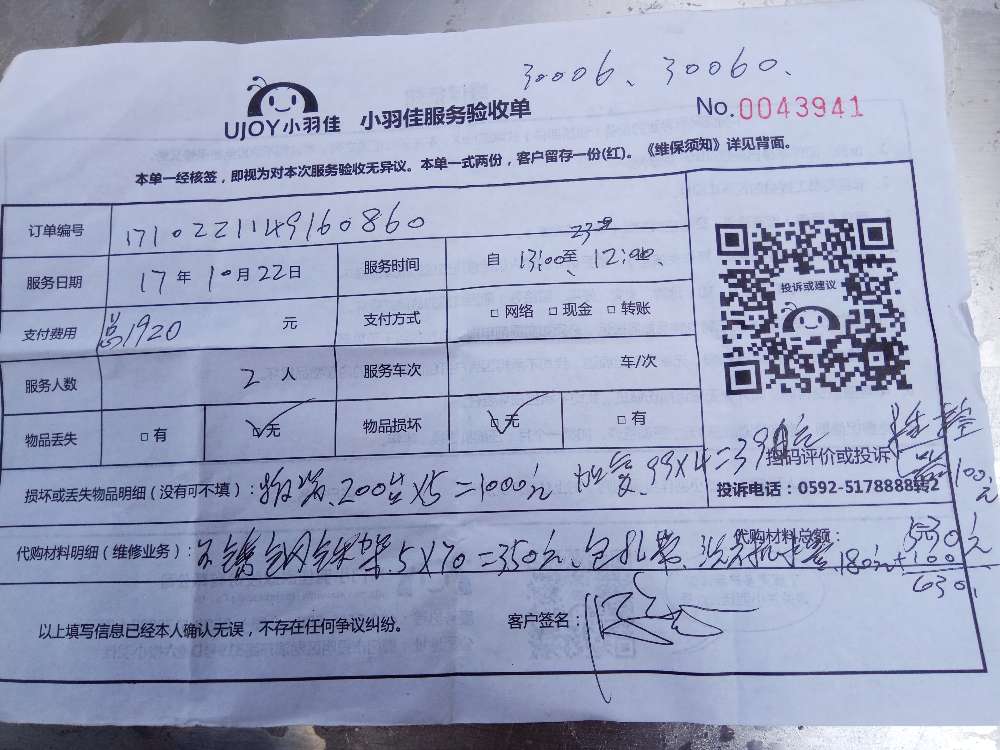 30006、30060、
UJOY小羽佳 小羽佳服务验收单 No.0043941
本单一经核签，即视为对本次服务验收无异议。本单一式两份，客户留存一份(红)。《维保须知》详见背面。
订单编号 1710221149160860
服务日期 17年10月22日 服务时间 自 13:00至 23号 12:00
支付费用 总1920 元 支付方式 □网络 □现金 □转账
服务人数 2人 服务车次 车/次
物品丢失 □有 ☑无 物品损坏 ☑无 □有
投诉或建议
扫码评价或投诉
投诉电话：0592-5178888转2
损坏或丢失物品明细（没有可不填）： 200台X5=1000元 加 99X4=390元
100元
代购材料明细（维修业务）：不锈钢铁架.5X70=350元、包扎带、洗 180元
代购材料总额： 530元
+100
630.
以上填写信息已经本人确认无误，不存在任何争议纠纷。 客户签名：